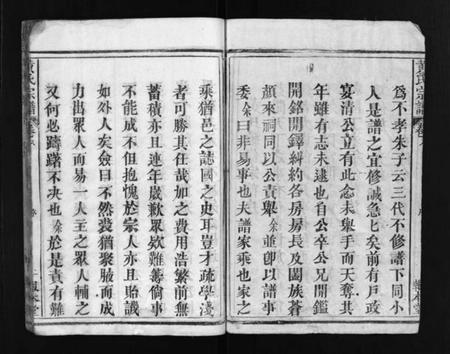 為不孝朱子云三代不修譜下同小
人是譜之宜修誠急已矣前有戶政
宴清公立有此念未舉手而天奪其
年雖有志未逮也自公卒公兄開鑑
開銘開鐸糾約各房房長及闔族耆
顏來祠同以公責舉余並卽以譜事
委余曰非易事也夫譜家乘也家之
乘猶邑之誌國之史耳豈才疏學淺
者可勝其任哉加之費用浩繁前無
蓄積亦且連年歲歉眾欵難籌倘事
不能成不但抱愧於宗人亦且貽譏
如外人矣僉曰不然裘猶聚腋而成
力出眾人而易一人主之眾人輔之
又何必躊躇不决也余於是責有難
黃氏宗譜